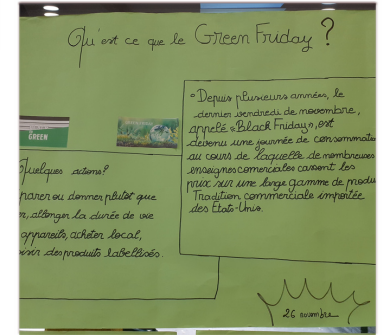 Qu'est ce que le Green Friday ?
• Depuis plusieurs années, le
dernier vendredi de novembre,
appelé "Black Friday", est
devenu une journée de consommatio
au cours de laquelle de nombreuses
enseignes comerciales cassent les
prix sur une large gamme de produi
Tradition commerciale importée
des États-Unis.
GREEN
Quelques actions?
parer ou donner plutôt que
r, allonger la durée de vie
appareils, acheter local,
isir des produits labellisés.
26 novembre